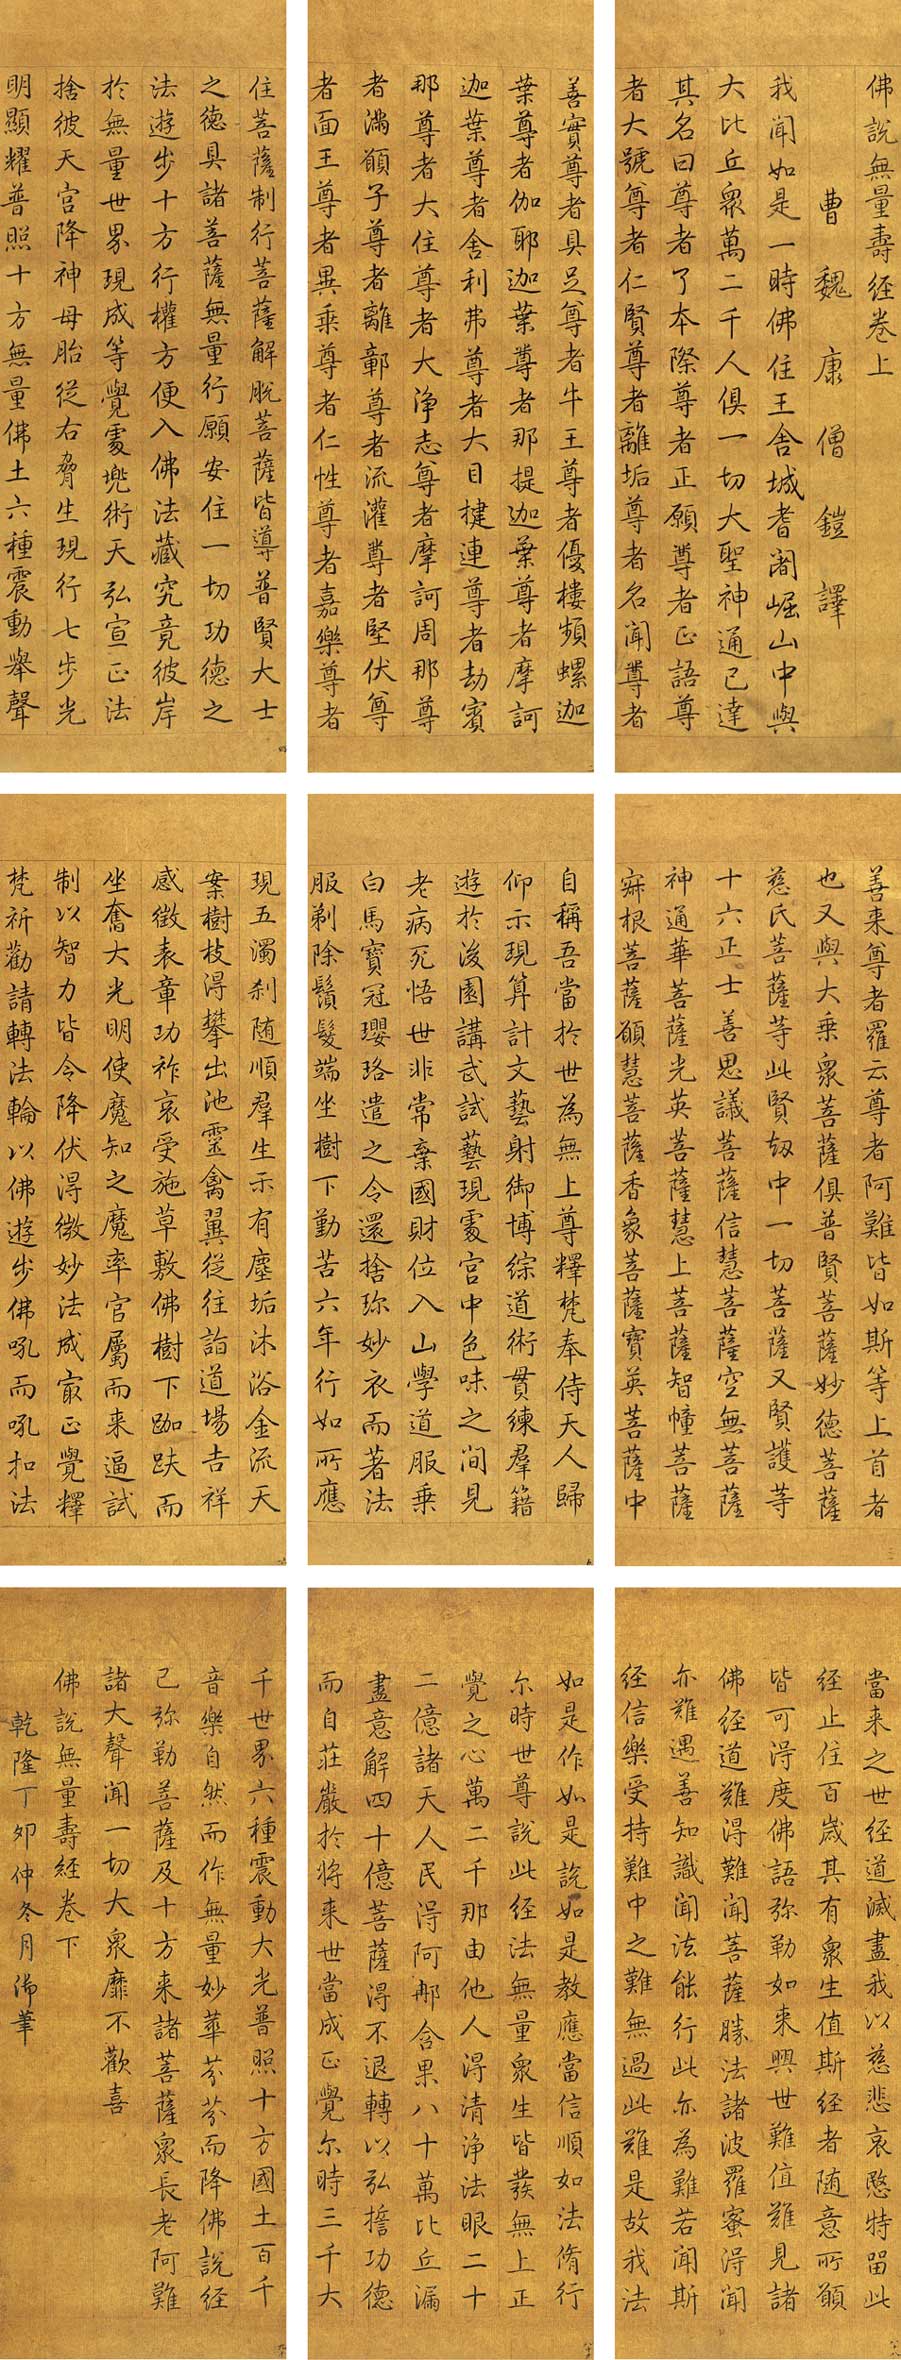 佛說無量壽經卷上
曹魏康僧鎧譯
我聞如是一時佛住王舍城耆闍崛山中與
大比丘眾萬二千人俱一切大聖神通已達
其名曰尊者了本際尊者正願尊者正語尊
者大號尊者仁賢尊者離垢尊者名聞尊者
善實尊者具足尊者牛王尊者優樓頻螺迦
葉尊者伽耶迦葉尊者那提迦葉尊者摩訶
迦葉尊者舍利弗尊者大目揵連尊者劫賓
那尊者大住尊者大淨志尊者摩訶周那尊
者滿願子尊者離鄣尊者流灌尊者堅伏尊
者面王尊者異乘尊者仁性尊者嘉樂尊者
住菩薩制行菩薩解脫菩薩皆導普賢大士
之德具諸菩薩無量行願安住一切功德之
法遊步十方行權方便入佛法藏究竟彼岸
於無量世界現成等覺處兜術天弘宣正法
捨彼天宮降神母胎從右脅生現行七步光
明顯耀普照十方無量佛土六種震動舉聲
善來尊者羅云尊者阿難皆如斯等上首者
也又與大乘眾菩薩俱普賢菩薩妙德菩薩
慈氏菩薩等此賢劫中一切菩薩又賢護等
十六正士善思議菩薩信慧菩薩空無菩薩
神通華菩薩光英菩薩慧上菩薩智幢菩薩
寂根菩薩願慧菩薩香象菩薩寶英菩薩中
自稱吾當於世為無上尊釋梵奉侍天人歸
仰示現算計文藝射御博綜道術貫練羣籍
遊於後園講武試藝現處宮中色味之間見
老病死悟世非常棄國財位入山學道服乘
白馬寶冠瓔珞遣之令還捨珎妙衣而著法
服剃除鬚髮端坐樹下勤苦六年行如所應
現五濁刹随順羣生示有塵垢沐浴金流天
案樹枝得攀出池靈禽翼從往詣道場吉祥
感徵表章功祚哀受施草敷佛樹下跏趺而
坐奮大光明使魔知之魔率官屬而来逼試
制以智力皆令降伏得微妙法成最正覺釋
梵祈勸請轉法輪以佛遊步佛吼而吼扣法
當来之世經道滅盡我以慈悲哀愍特留此
經止住百歲其有眾生值斯經者随意所願
皆可得度佛語弥勒如来興世難值難見諸
佛經道難得難聞菩薩勝法諸波羅蜜得聞
亦難遇善知識聞法能行此亦為難若聞斯
經信樂受持難中之難無過此難是故我法
如是作如是說如是教應當信順如法脩行
尔時世尊說此經法無量眾生皆發無上正
覺之心萬二千那由他人得清淨法眼二十
二億諸天人民得阿那含果八十萬比丘漏
盡意解四十億菩薩得不退轉以弘誓功德
而自莊嚴於將来世當成正覺尔時三千大
千世界六種震動大光普照十方國土百千
音樂自然而作無量妙華芬芬而降佛說經
已弥勒菩薩及十方来諸菩薩眾長老阿難
諸大聲聞一切大眾靡不歡喜
佛說無量壽經卷下
乾隆丁卯仲冬月御筆